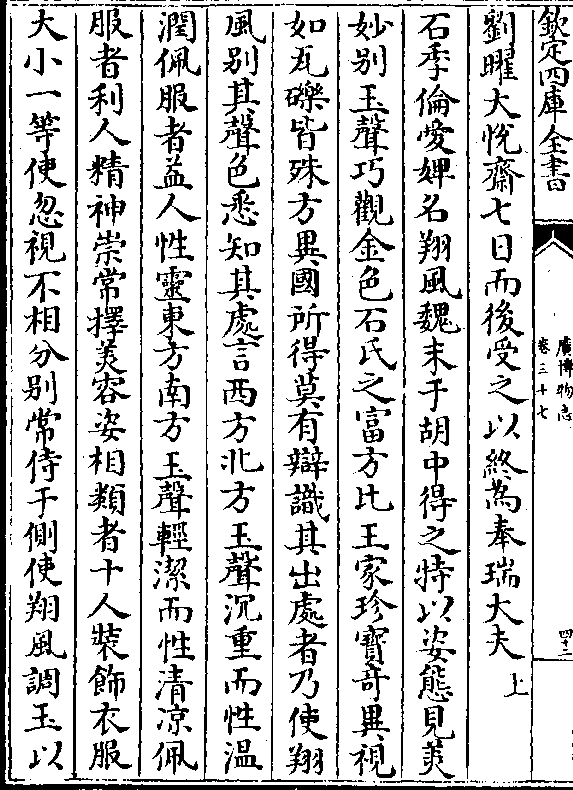 欽定四庫全書
廣博物志
卷三十七
四十二
劉曜大悅齋七日而後受之以終為奉瑞大夫 上
石季倫愛婢名翔風魏末于胡中得之特以姿態見羙
妙别玉聲巧觀金色石氏之富方比王家珍寶竒異視
如瓦礫皆殊方異國所得莫有辯識其出處者乃使翔
風别其聲色悉知其處言西方北方玉聲沉重而性温
潤佩服者益人性靈東方南方玉聲輕潔而性清凉佩
服者利人精神崇常擇美容姿相類者十人裝飾衣服
大小一等使忽視不相分别常侍于側使翔風調玉以